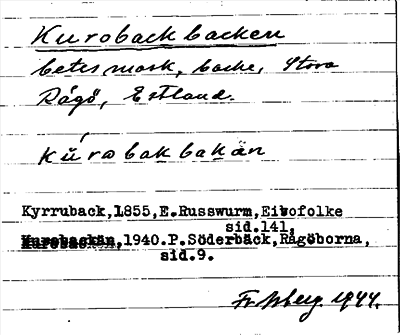 Kurobackbacken
betesmark, backe, Stora
Rågö, Estland.
kŭ́robakbakän
Kyrruback,1855,E.Russwurm,Eibofolke
sid.141,
Kurobackän,1940.P.Söderbäck,Rågöborna,
sid.9.
1944.